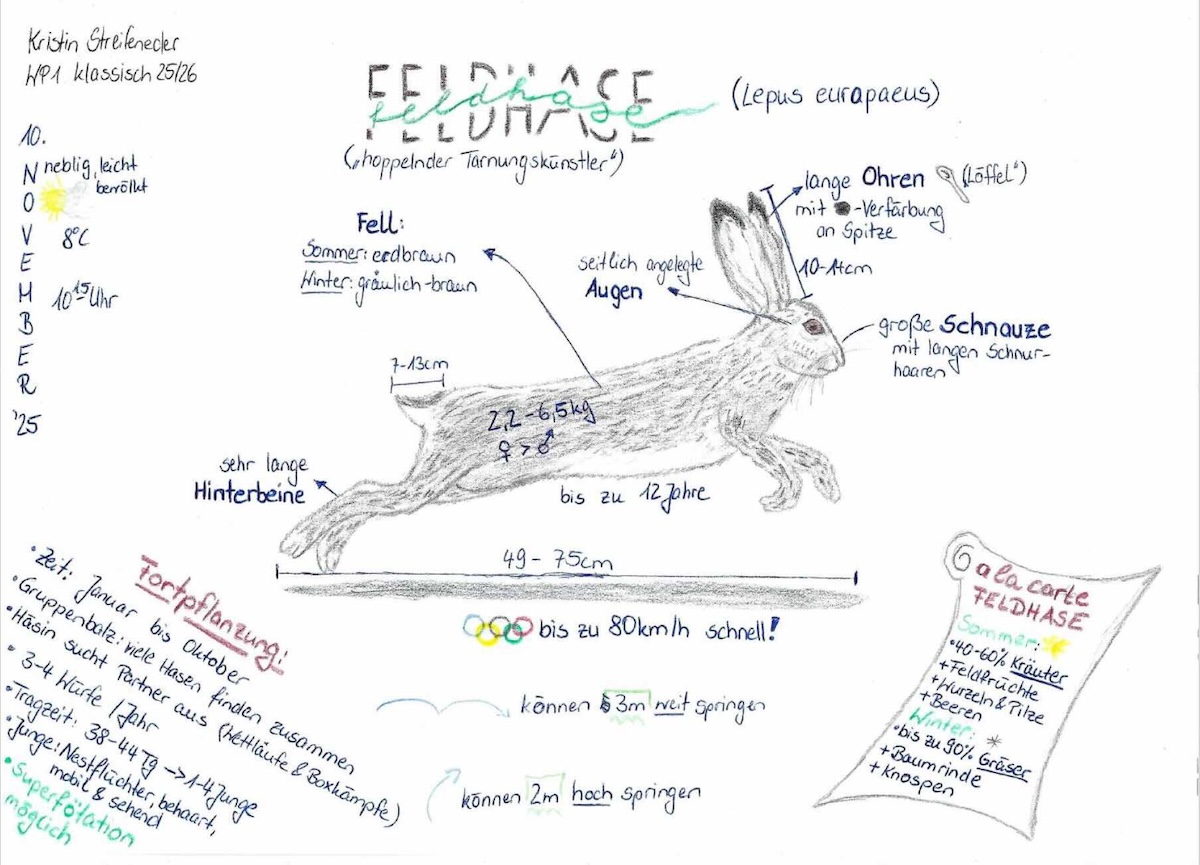 Kristin Streifeneder
WP1 klassisch 25/26
FELDHASE
feldhase
(Lepus europaeus)
("hoppelnder Tarnungskünstler")
10.
NOVEMBER
'25
neblig, leicht
bewölkt
8°C
10¹⁵ Uhr
Fell:
Sommer: erdbraun
Winter: gräulich-braun
seitlich angelegte
Augen
lange Ohren ("Löffel")
mit -Verfärbung
an Spitze
10-14cm
große Schnauze
mit langen Schnur-
haaren
7-13cm
2,2-6,5kg
♀ > ♂
sehr lange
Hinterbeine
bis zu 12 Jahre
49-75cm
bis zu 80km/h schnell!
können 3m weit springen
können 2m hoch springen
Fortpflanzung:
• Zeit: Januar bis Oktober
• Gruppenbalz: viele Hasen finden zusammen
• Häsin sucht Partner aus (Wettläufe & Boxkämpfe)
• 3-4 Würfe /Jahr
• Tragzeit: 38-44 Tg → 1-4 Junge
• Junge: Nestflüchter, behaart,
mobil & sehend
• Superfötation
möglich
a la carte
FELDHASE
Sommer:
• 40-60% Kräuter
+ Feldfrüchte
+ Wurzeln & Pilze
+ Beeren
Winter:
• bis zu 90% Gräser
+ Baumrinde
+ Knospen